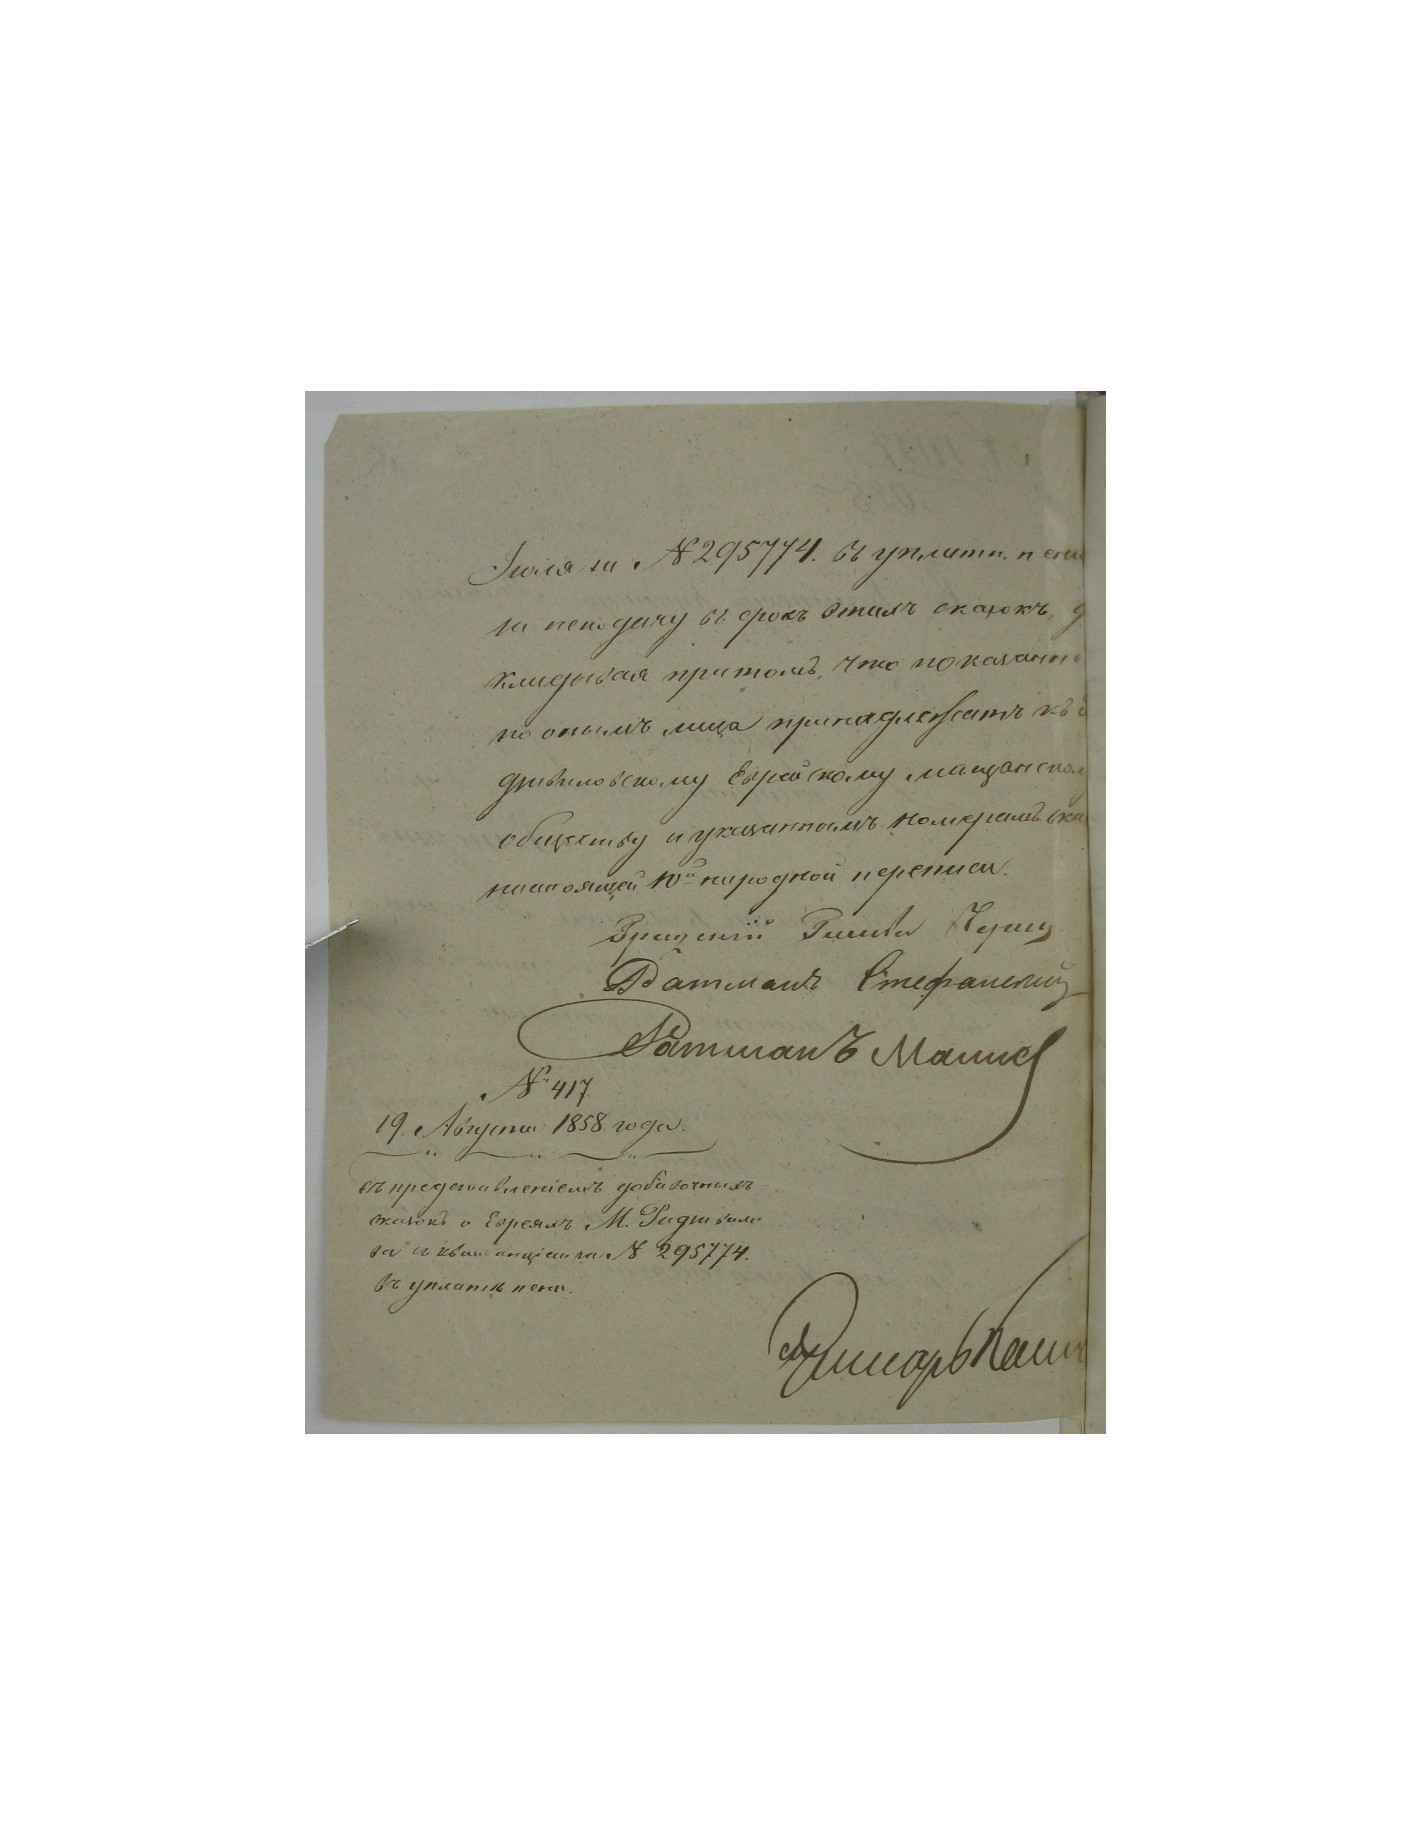 Іюля за № 295774. въ уплати пени
за неподачу въ срокъ этихъ сказокъ, д
кладывая притомъ, что показанн
по онымъ лица принадлежатъ къ
дзивиловскому Еврейскому мѣщанском
обществу и указаннымъ номерамъ ска
настоящей 10й народной переписи.
Градскій Глава
Ратманъ Стефанскій
Ратманъ
№ 417
19. Августа 1858 года.
съ представленіемъ добавочныхъ
сказокъ о Евреяхъ М. Радзивило
ва и квитанціи за № 295774.
въ уплатѣ пени.